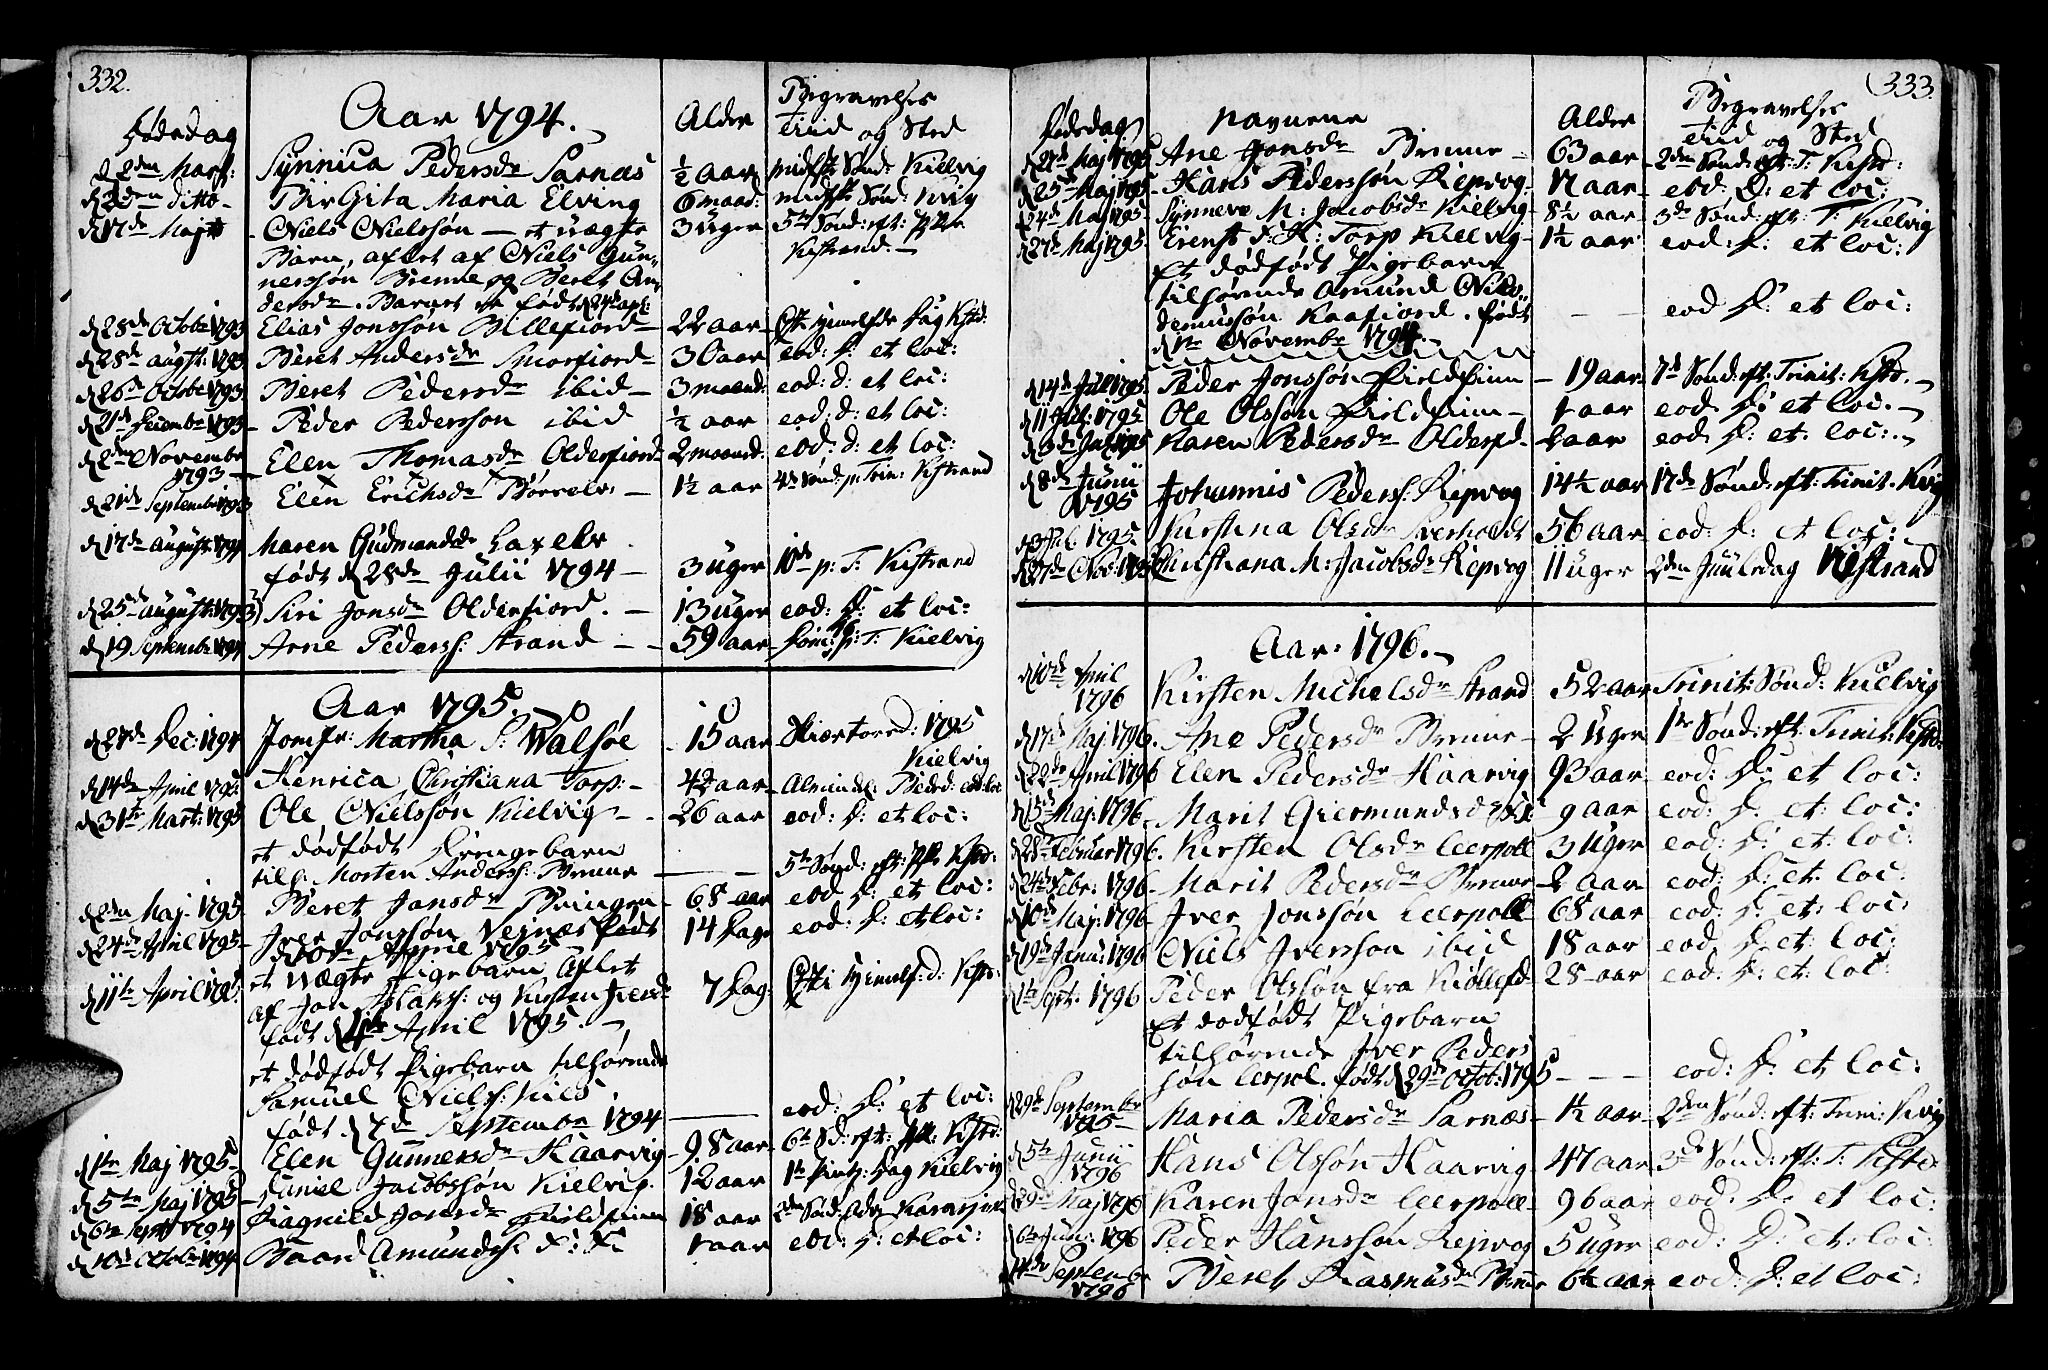 332.
Aar 1794.
Dødsdag
Alder
Begravelses
tiid og Sted
d 22den Mart:
Synnica Pedersdr Sarnæs
½ Aar
midfste Sønd: Kielvig
d 3den ditto
BirGita Maria Elving
6 maad:
midfste Sønd: Kvig
d 17de Maji
Niels Nielssøn et uægte
3 Uger
5te Sønd: eft:
Barn, aflet af Niels Gun-
Kistrand.
nerssøn Brenne og Beret An-
dersdr. Barnet er født d 24de apr:
d 28de Octobr 1793
Elias Jonssøn Billefiord
22 aar
d 28de augst: 1793
Beret Andersdr Smorfiord
30 aar
eod: d: et loc:
d 26de Octobr 1793
Beret Pedersdr ibid
3 maand:
eod: d: et loc:
d 21de Decembr 1793
Peder Pederssøn ibid
½ aar
eod: d: et loc:
d 2den Novembr
1793
Elen Thomasdr Olderfiord
2 maand:
eod: d: et loc:
d 21de Septembr 1793
Elen Erichsdr Børrelv
1½ aar
4de Sønd: p: Trin: Kistrand
d 17de August: 1794
Maren Gudmandsdr Laxelv
født d 28de Julii 1794
3 Uger
10de p: T: Kistrand
d 25de august: 1793
Siri Jonsdr Olderfiord.
13 Uger
eod: d: et loc:
d 19 Septembr 1794
Arne Peders: Strand
59 aar
p: T: Kielvig
Aar 1795.
d 27de Dec: 1794
Jomfr: Martha S: Walsøe
15 aar
Skiærtorsd: 1795
Kielvig
d 14de April 1795
Henrica Christiana Torp:
4¾ aar
Almindel: Beded: eod: loc
d 31te Mart: 1795
Ole Nielssøn Kielvig
26 aar
eod: d: et loc:
et dødfødt Drengebarn
tilh: Morten Anderss: Brenne
5te Sønd: eft: Kistr:
d 2den Maj. 1795
Beret Jansdr
68 aar
eod d: et loc:
d 24de April 1795
Iver Jonssøn født
14 dage
eod: d: et loc:
April 1795
et uægte Pigebarn Aflet
d 11te April 1795
af Jon og Kirsten
7 dag
født d 4de April 1795.
et dødfødt Pigebarn tilhørende
Samuel Niels:
eod: d: et loc:
født d 7de Septembr 1794
d 1te Maj 1795
Elen Gunnersdr Haarvig
98 aar
d 5te Maj 1795
Daniel Jacobssøn Kielvig.
12 aar
1te Pintz: dag Kielvig
d 6te Sept 1794
Ragnild Jonsdr Fieldfinn
18 aar
d 10de Octobr 1794
Baard Amunds:
1 aar
eod: d: et loc:
333.
Dødsdag
Navnene
Alder
Begravelses
tiid og Sted
d 21de Maj 1795
Ane Jonsdr Brenne
63 aar
2den Sønd: eft: T: Kistr:
d 25de Maj 1795
Hans Pederssøn Repvog
17 aar
eod: d: et loc:
d 24de Maj 1795
Synneve M: Jacobsdr Kielvig
8½ aar
3de Sønd: eft: T: Kielvig
d 27de Maj 1795
Erenst Torp Kielvig
1½ aar
eod: d: et loc:
Et dødfødt Pigebarn
tilhørende Amund Nico-
demussøn Kaafiord. født
eod d: et loc:
d 1te Novembr 1794.
d 14de Juli 1795
Peder Jonssøn Fieldfinn
19 aar
7de Sønd: eft: Trinit: Kistr.
d 11 Jul: 1795
Ole Olssøn Fieldfinn
1 aar
eod. d: et loc.
d 3de Jul 1795
Karen Pedersdr Olderfd
2 aar
eod: d: et loc:
d 8de Junii
1795
Johannis Peders: Repvog
14½ aar
17de Sønd: eft: Trinit. Kvig
1795
Kirstina Olsdr Sverholdt
56 aar
eod: d: et loc:
d 27de Nov: 1795
Christiana M: Jacobsdr Repvog
11 uger
2den Juuledag Kistrand
Aar: 1796.
d 10de April
1796
Kirsten Michelsdr Strand
52 aar
Trinit: Sønd: Kielvig
d 17de Maj. 1796.
Ane Pedersdr Brenne
2 Uger
1te Sønd: eft: Trinit: Kistr.
d 22de April 1796
Elen Pedersdr Haarvig
93 aar
eod: d: et loc:
d 13de Maj: 1796
Marit Giermundsdr
9 aar
eod: d: et loc:
d 28de Februar 1796.
Kirsten Olsdr Leerpoll
3 Uger
eod: d: et loc:
d 24de Febr: 1796
Marit Pedersdr Brenne
2 aar
eod: d: et loc:
d 10de Maj: 1796
Iver Jonssøn Leerpoll
68 aar
eod: d: et loc:
d 19de Janu: 1796
Niels Iverssøn ibid
18 aar
eod: d: et: loc:
d 1te Sept: 1796
Peder Olssøn fra Kiøllefd
28 aar
eod: d: et: loc:
Et dødfødt Pigebarn
tilhørende Iver Peders
søn Leerpol. født d 29de Octob: 1795
eod: d: et loc:
d 29de Septembr
1795
Maria Pedersdr Sarnæs
1½ aar
2den Sønd: eft: Trin: Kvig
d 5te Junii
1796
Hans Olssøn Haarvig
47 aar
3de Sønd: eft: T: Kistr.
d 29de Maj 1796
Karen Jonsdr Leerpoll
96 aar
eod: d: et loc:
d 6te Jun: 1796
Peder Hanssøn Repvog
5 Uger
eod: d: et: loc:
d 14de Septembr
1796
Beret Rasmusdr Brenne
6½ aar
eod: d: et loc: